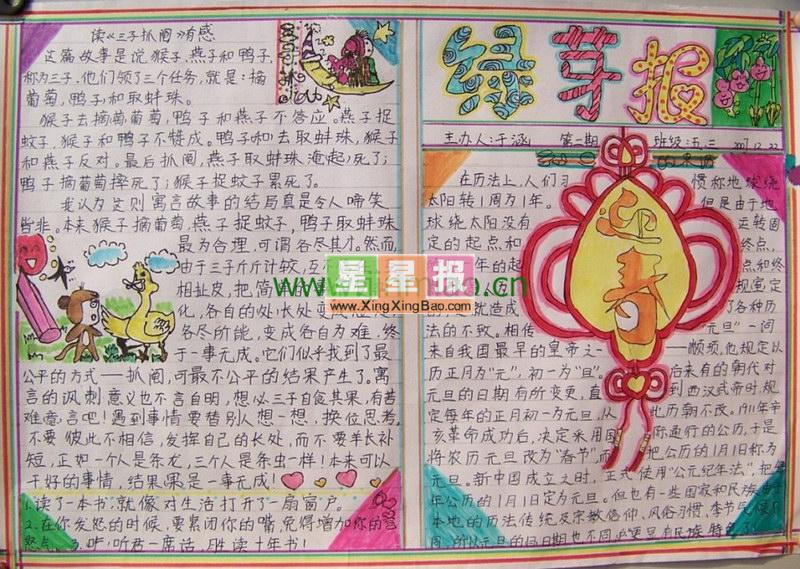 读《三子抓阄》有感
这篇故事是说猴子,燕子和鸭子,
称为三子,他们领了三个任务,就是:摘
葡萄,鸭子和取蚌珠。
猴子去摘葡萄,鸭子和燕子不答应。燕子捉
蚊子,猴子和鸭子不赞成。鸭子和去取蚌珠,猴子
和燕子反对。最后抓阄,燕子取蚌珠淹死了;
鸭子摘葡萄摔死了;猴子捉蚊子累死了。
我认为这则寓言故事的结局真是令人啼笑
皆非。本来猴子摘葡萄,燕子捉蚊子,鸭子取蚌珠
最为合理,可谓各尽其才。然而,
由于三子斤斤计较,互
相扯皮,把简
化,各自的处长处变
各尽所能,变成各自为难,终
于一事无成。它们似乎找到了最
公平的方式——抓阄,可最不公平的结果产生了。寓
言的讽刺意义也不言自明,想必三子自食其果,有苦
难言吧!遇到事情要替别人想一想,换位思考,
不要彼此不相信,发挥自己的长处,而不要羊长补
短,正如一个人是条龙,三个人是条虫一样!本来可以
干好的事情,结果是一事无成!
1.读了一本书,就像对生活打开了一扇窗户。
2.在你发怒的时候,要紧闭你的嘴,免得增加你的
怒气。3.听君一席话,胜读十年书!
绿芽报
主办人:于涵 第二期 班级:五三
迎春
在历法上,人们习惯称地球绕
太阳转1周为1年。但是由于地
球绕太阳没有
运转固
定的起点和
终点,
年的起
点和终
规定
就造成
了各种历
法的不致。相传
"元旦"一词
来自我国最早的皇帝之——颛顼,他规定以
历正月为"元",初一为"旦"。后来有的朝代对
元旦的日期有所变更,直到西汉武帝时,规
定每年的正月初一为元旦,从此历朝不改。1911年辛
亥革命成功后,决定采用国际通行的公历,于是
将农历元旦改为"春节",而把公历的1月1日称为
元旦。新中国成立之时,正式使用"公元纪年法",把
年公历的1月1日定为元旦。但也有一些国家和民族
本地的历法传统及宗教信仰、风俗习惯、季节气候
所以元旦的日期也不同,
星星报
www.XingXingBao.com